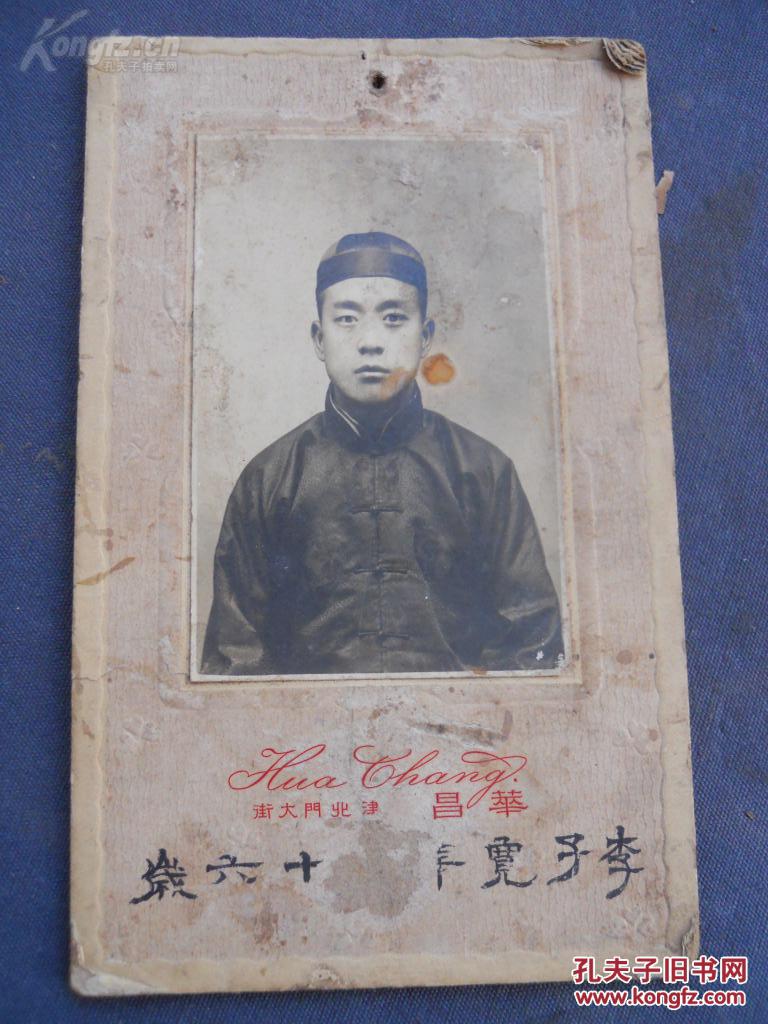 Kongfz.cn
孔夫子拍卖网
Hua Chang.
華昌 津北門大街
李子寬年 十六歲
孔夫子旧书网
www.kongfz.com